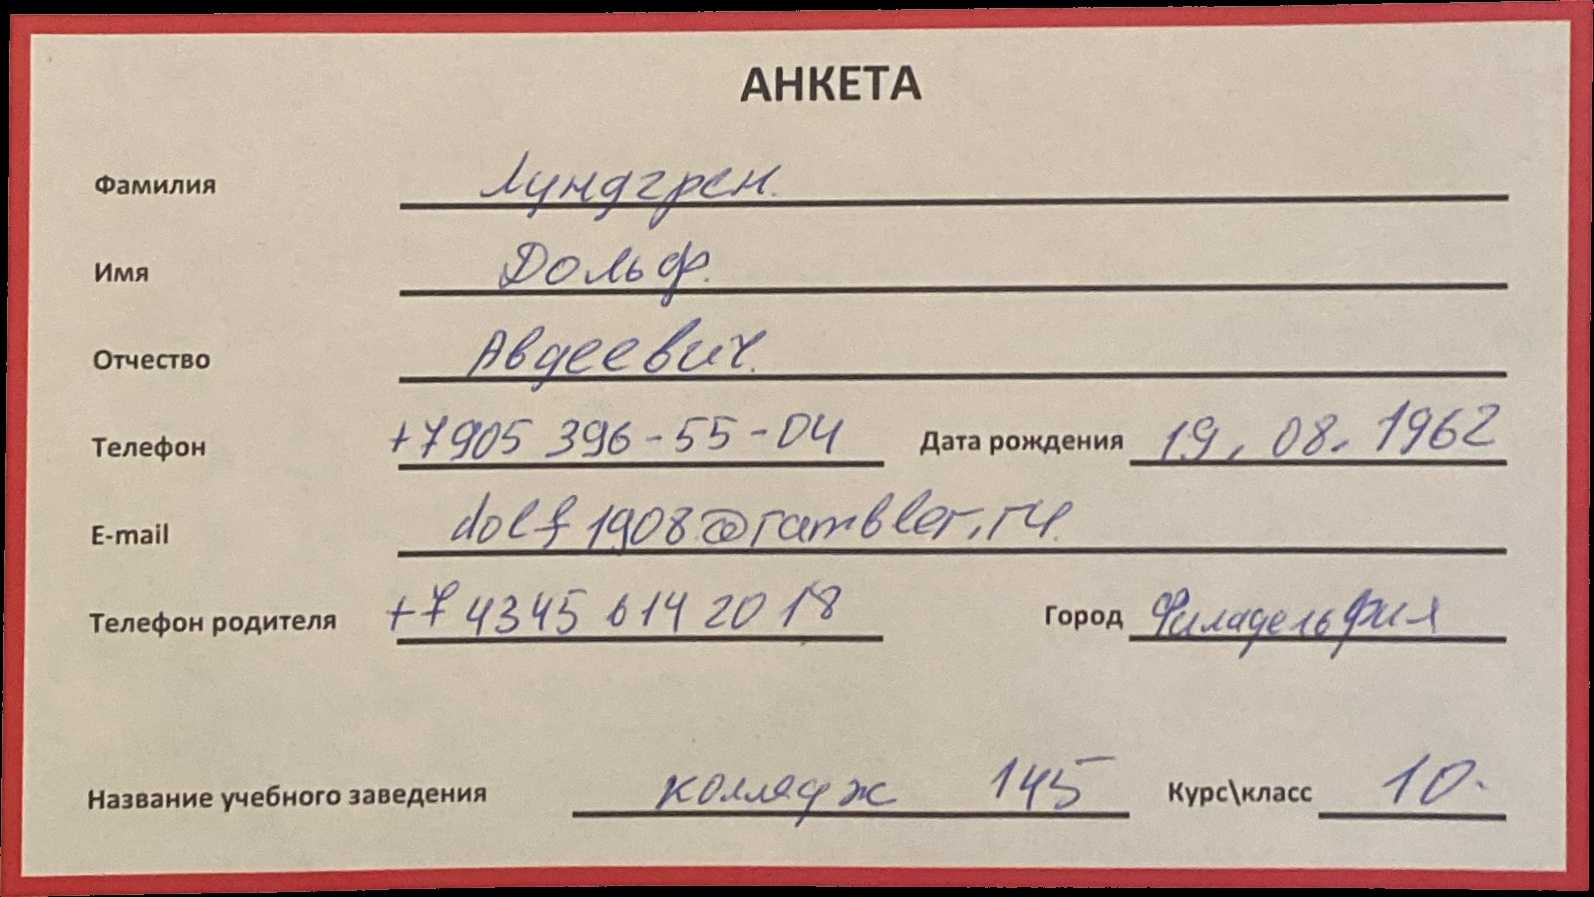 АНКЕТА
Фамилия Лундгрен.
Имя Дольф.
Отчество Авдеевич.
Телефон +7905 396-55-04 Дата рождения 19.08.1962
E-mail dolf1908@rambler.ru.
Телефон родителя +7 4345 614 20 18 Город Филадельфия
Название учебного заведения колледж 145 Курс\класс 10.